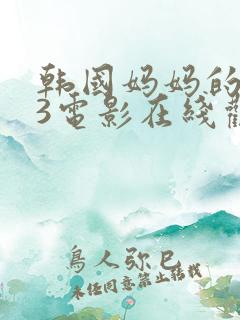 韩国妈妈的
3电影在线
鸟人弥巳
未经同意禁止转载